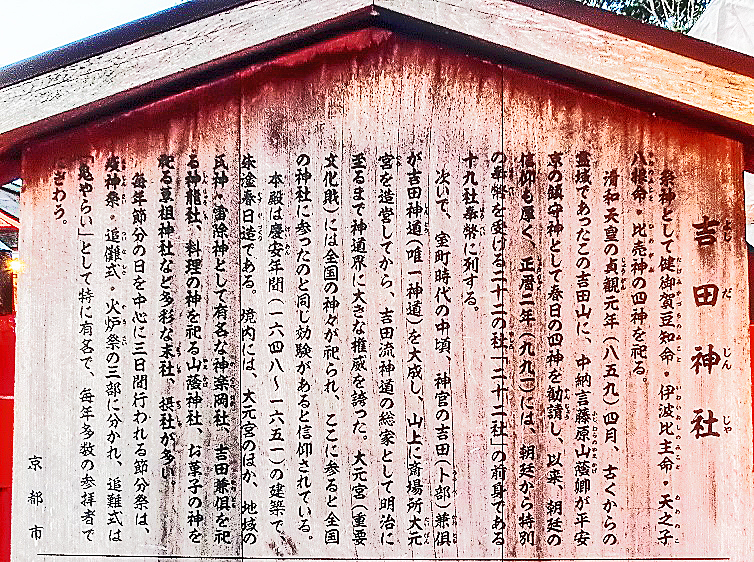 吉田神社
よしだじんじゃ
祭神として健御賀豆知命・伊波比主命・天之子
八根命・比売神の四神を祀る。
清和天皇の貞観元年（八五九）四月、古くからの
霊域であったこの吉田山に、中納言藤原山蔭卿が平安
京の鎮守神として春日の四神を勧請し、以来、朝廷の
信仰も厚く、正暦二年（九九一）には、朝廷から特別
の奉幣を受ける二十二の社「二十二社」の前身である
十九社奉幣に列する。
次いで、室町時代の中頃、神官の吉田（卜部）兼倶
が吉田神道（唯一神道）を大成し、山上に斎場所大元
宮を造営してから、吉田流神道の総家として明治に
至るまで神道界に大きな権威を誇った。大元宮（重要
文化財）には全国の神々が祀られ、ここに参ると全国
の神社に参ったのと同じ効験があると信仰されている。
本殿は慶安年間（一六四八〜一六五一）の建築で、
朱塗春日造である。境内には、大元宮のほか、地域の
氏神・雷除神として有名な神楽岡社、吉田兼倶を祀
る神龍社、料理の神を祀る山蔭神社、お菓子の神を
祀る菓祖神社など多彩な末社、摂社が多い。
毎年節分の日を中心に三日間行われる節分祭は、
疫神祭・追儺式・火炉祭の三部に分かれ、追儺式は
「鬼やらい」として特に有名で、毎年多数の参拝者で
にぎわう。
京都市